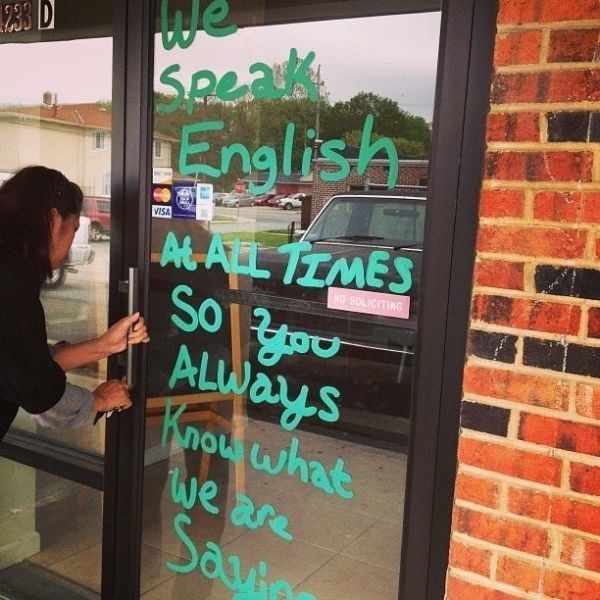 1233 D
We
Speak
English
VISA
At ALL TIMES
NO SOLICITING
So you
ALWays
Know what
we are
Saying